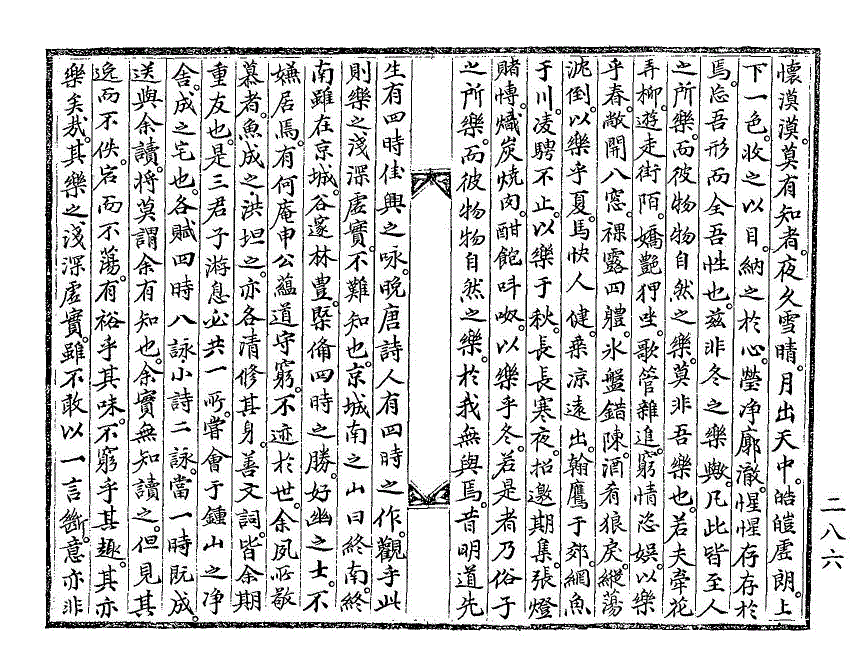 懷漠漠。莫有知者。夜久雪晴。月出天中。皓皚虛朗。上
下一色。收之以目。納之於心。瑩净廓澈。惺惺存存於
焉。忘吾形而全吾性也。茲非冬之樂歟。凡此皆至人
之所樂。而彼物物自然之樂。莫非吾樂也。若夫牽花
弄柳。遊走街陌。嬌艶狎坐。歌管雜進。窮情恣娛。以樂
乎春。敞開八窓。裸露四軆。氷盤錯陳。酒肴狼戾。縱蕩
沈倒。以樂乎夏。馬快人健。乘凉遠出。翰鷹于郊。網魚
于川。凌騁不止。以樂于秋。長長寒夜。招邀期集。張燈
賭博。熾炭燒肉。酣飽呌呶。以樂乎冬。若是者乃俗子
之所樂。而彼物物自然之樂。於我無與焉。昔明道先
生有四時佳興之咏。晩唐詩人有四時之作。觀乎此
則樂之淺深虛實。不難知也。京城南之山曰終南。終
南雖在京城。谷邃林豊。槩俻四時之勝。好幽之士。不
嫌居焉。有何庵申公蘊道守窮。不迹於世。余夙所敬
慕者。魚成之洪坦之。亦各清修其身。善文詞。皆余期
重友也。是三君子游息必共一所。嘗會于鍾山之净
舍。成之宅也。各賦四時八詠小詩二詠。當一時旣成。
送與余讀。將莫謂余有知也。余實無知讀之。但見其
逸而不佚。宕而不蕩。有裕乎其味。不窮乎其趣。其亦
樂矣哉。其樂之淺深虛實。雖不敢以一言斷。意亦非
二八六